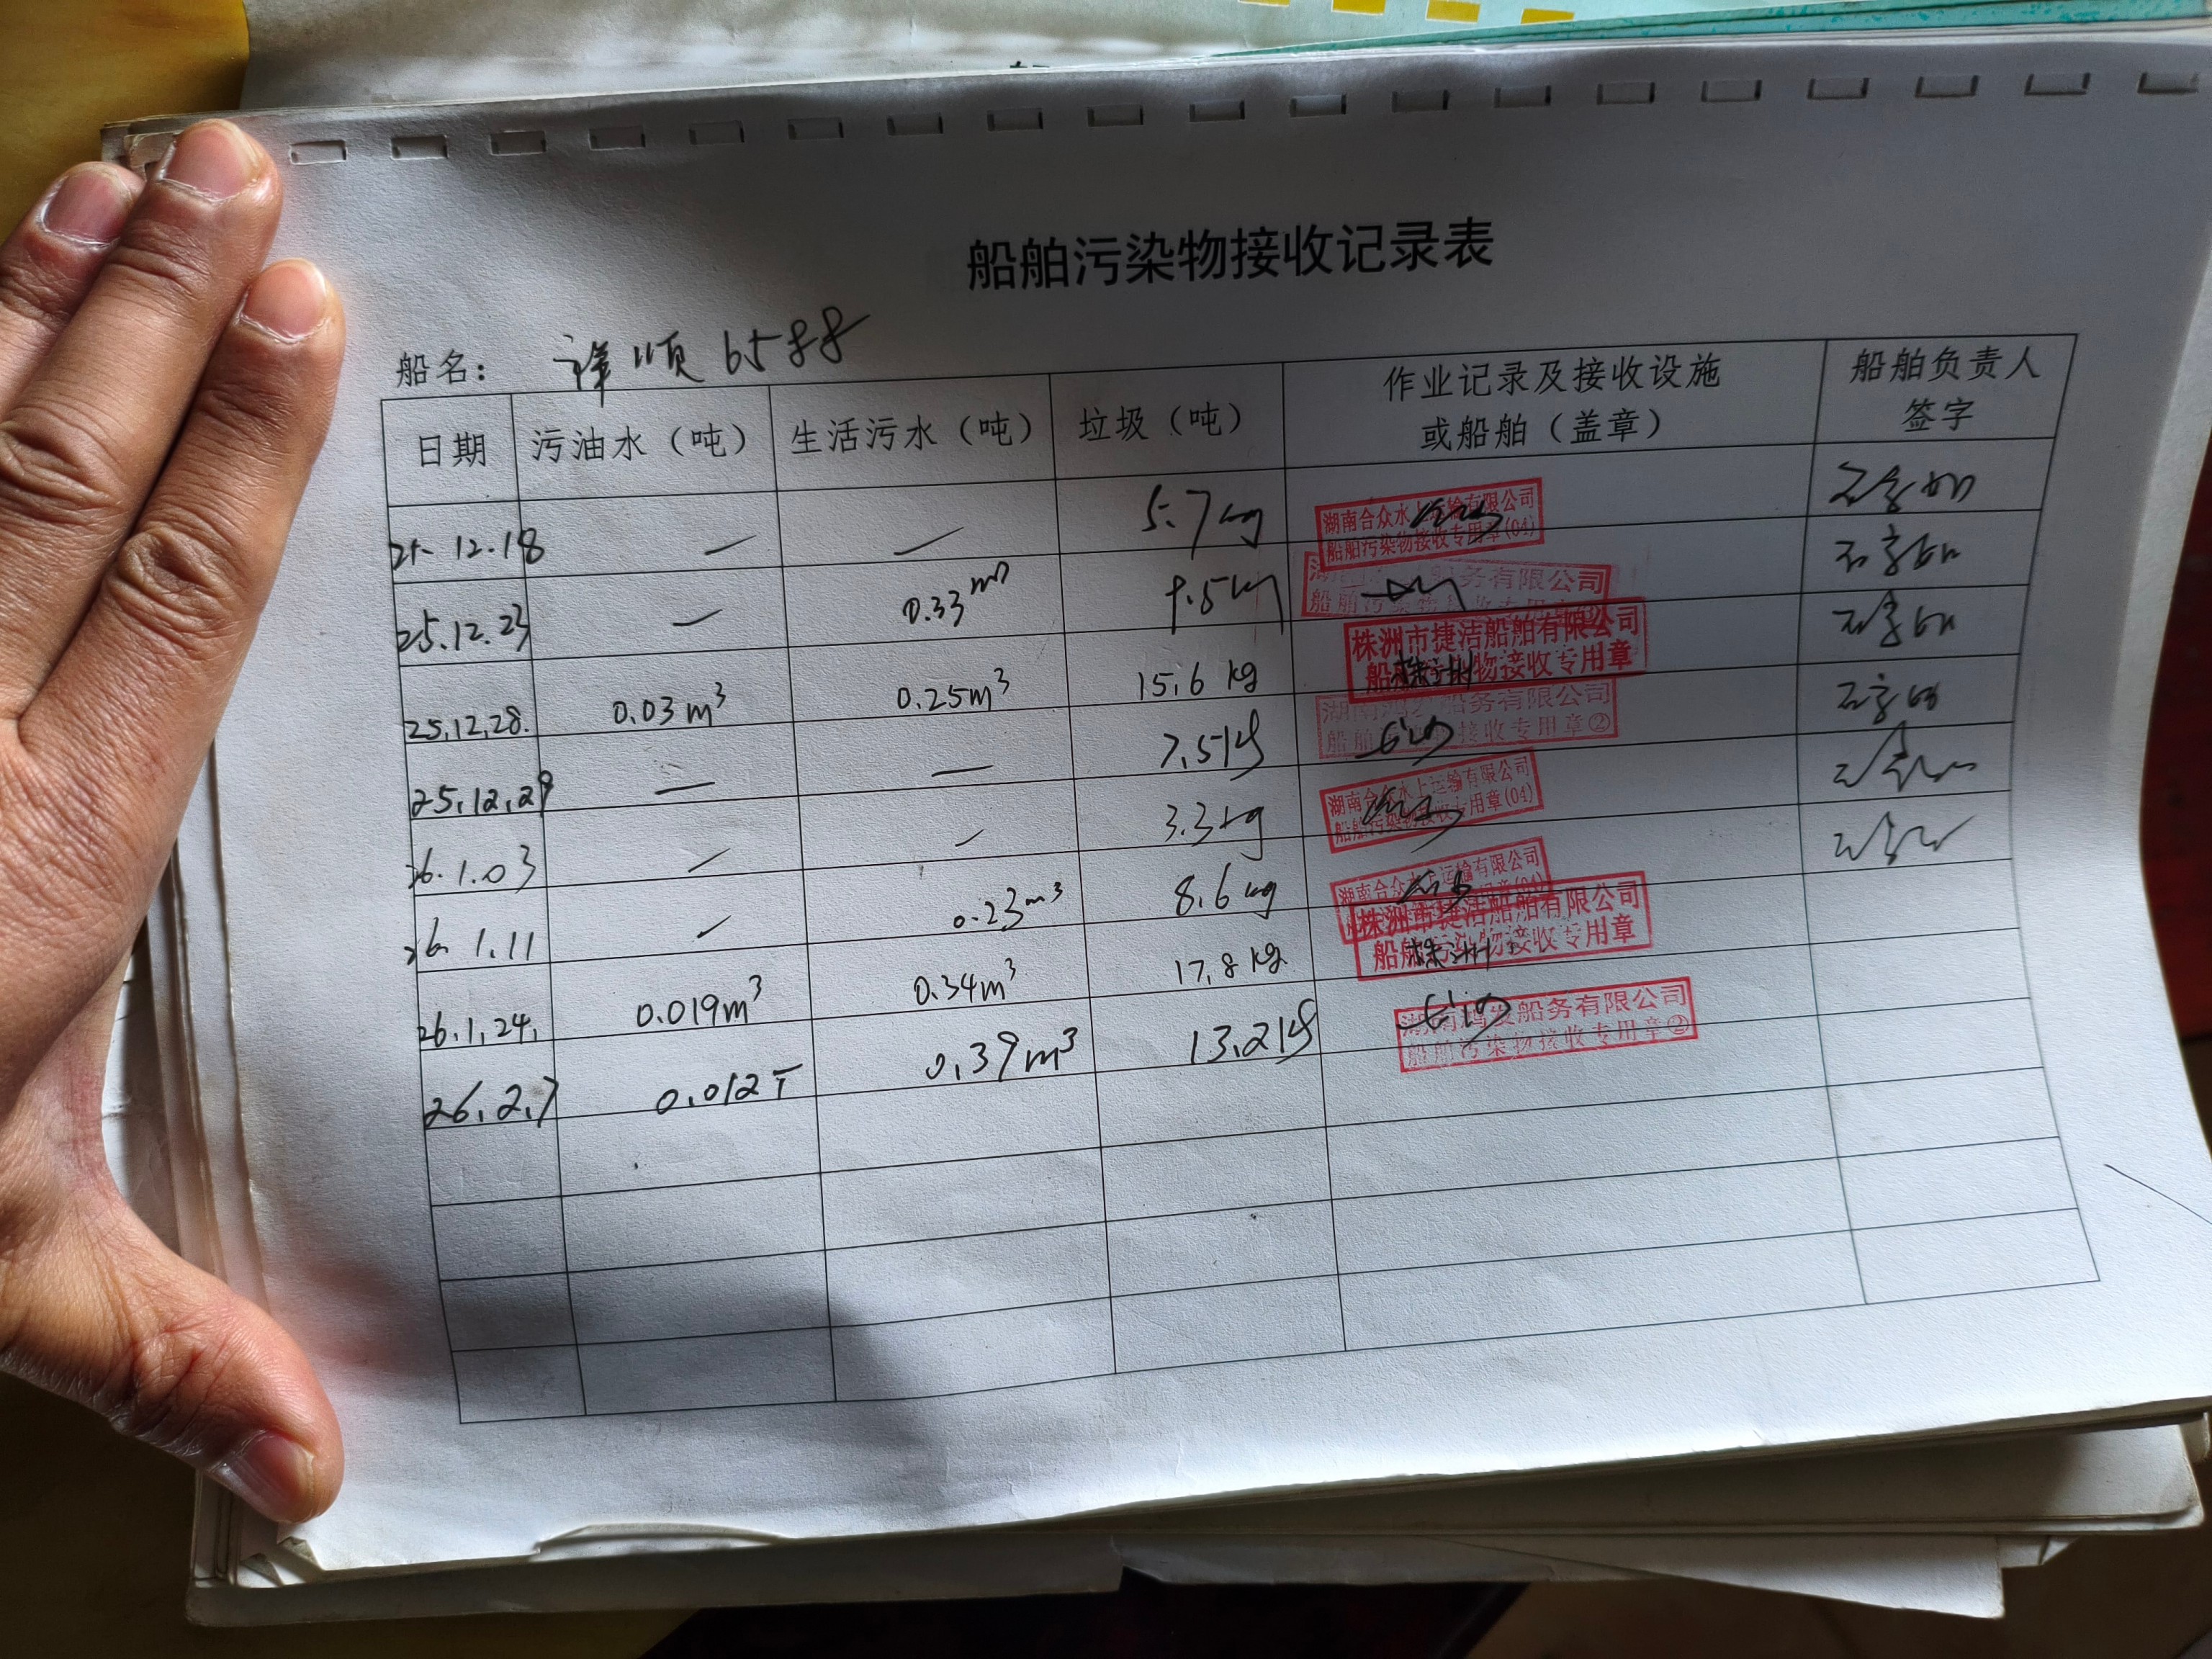 船舶污染物接收记录表
船名： 祥顺6588
日期 污油水（吨） 生活污水（吨） 垃圾（吨） 作业记录及接收设施或船舶（盖章） 船舶负责人签字
25.12.18 — — 5.7kg 湖南合众水上运输有限公司 船舶污染物接收专用章(04)
25.12.23 — 0.33m³ 9.5kg 务有限公司
25.12.28. 0.03m³ 0.25m³ 15.6kg 株洲市捷洁船舶有限公司 船舶污染物接收专用章 株洲
25.12.29 — — 7.5kg 船务有限公司 船舶 接收专用章②
26.1.03 — — 3.3kg 湖南合众水上运输有限公司 船舶污染物接收专用章(04)
26.1.11 — 0.23m³ 8.6kg 湖南合众水上运输有限公司
26.1.24. 0.019m³ 0.34m³ 17.8kg 株洲市捷洁船舶有限公司 船舶污染物接收专用章 株洲
26.2.7 0.012T 0.39m³ 13.2kg 船务有限公司 船舶污染物接收专用章②